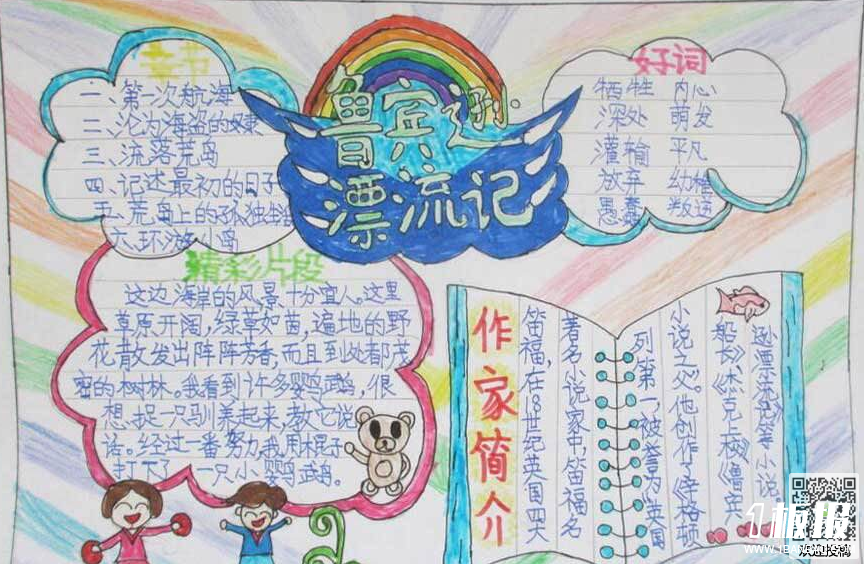 鲁宾逊
漂流记
章节
一、第一次航海
二、沦为海盗的奴隶
三、流落荒岛
四、记述最初的日子
五、荒岛上的孤独
六、环游小岛
好词
牺牲 内心
深处 萌发
灌输 平凡
放弃 幼稚
愚蠢 叛逆
精彩片段
这边海岸的风景十分宜人。这里
草原开阔,绿草如茵,遍地的野
花散发出阵阵芳香,而且到处都茂
密的树林。我看到许多鹦鹉,很
想捉一只驯养起来,教它说
话。经过一番努力,我用棍子
打下了一只小鹦鹉。
作家简介
笛福,在18世纪英国四大
著名小说家中,笛福名
列第一,被誉为英国
小说之父。他创作《辛格顿
船长》《杰克上校》《鲁宾
逊漂流记》等小说。
1板报
WWW.1BANBAO.COM
欢迎投稿